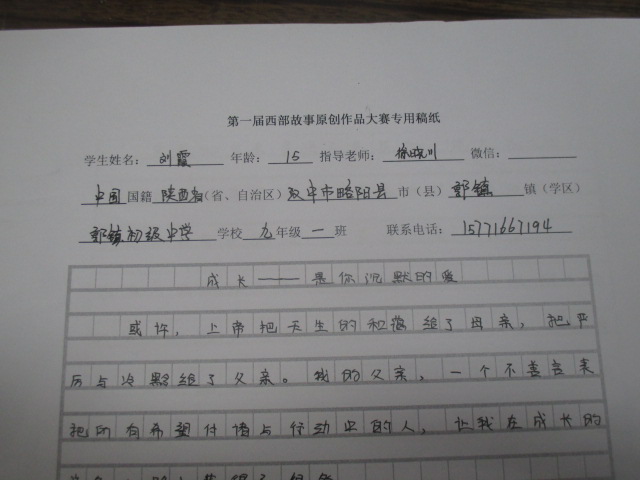 第一届西部故事原创作品大赛专用稿纸
学生姓名：刘霞 年龄：15 指导老师：徐晓川 微信：
中国国籍 陕西省（省、自治区）汉中市略阳县市（县）郭镇镇（学区）
郭镇初级中学学校 九年级一班 联系电话：15771667194
成长——是你沉默的爱
或许，上帝把天生的和蔼给了母亲，把严
厉与冷默给了父亲。我的父亲，一个不善言表
把所有希望付诸与行动中的人，让我在成长的